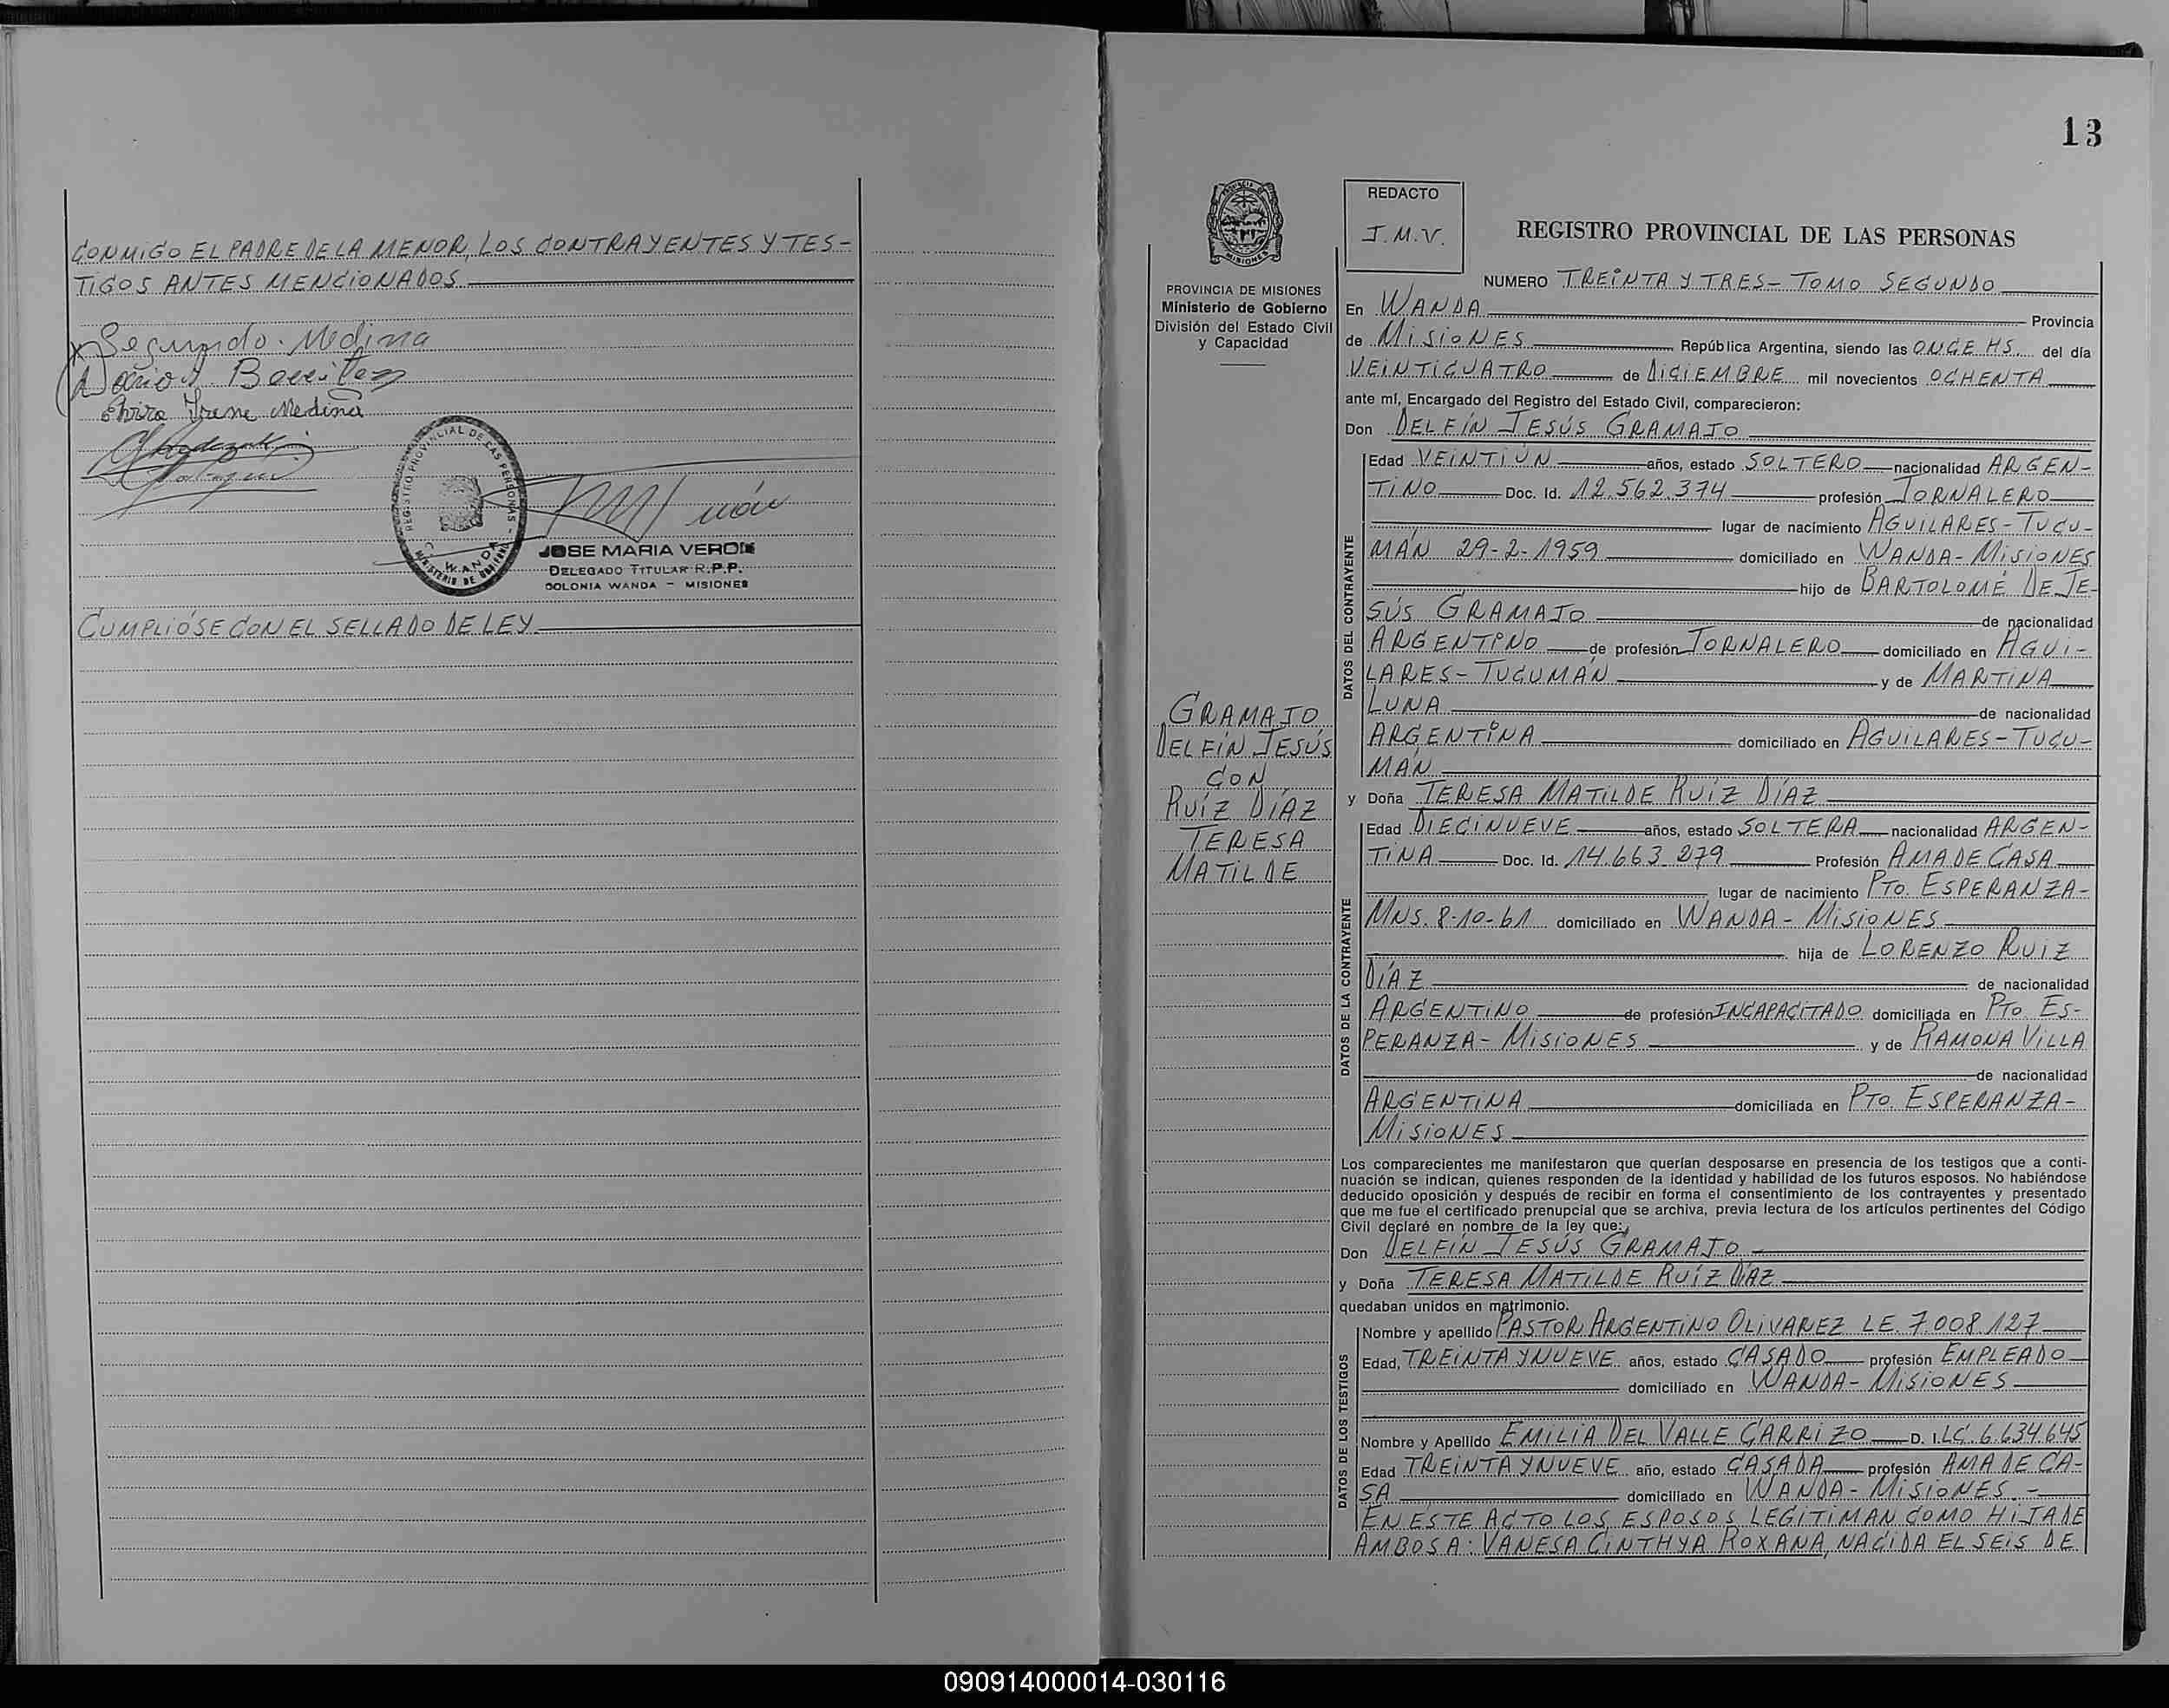 CONMIGO EL PADRE DE LA MENOR, LOS CONTRAYENTES Y TES-
TIGOS ANTES MENCIONADOS
Segundo Medina
Benitez
Irene Medina
REGISTRO PROVINCIAL DE LAS PERSONAS
MINISTERIO DE GOBIERNO
WANDA
JOSE MARIA VERON
DELEGADO TITULAR R.P.P.
COLONIA WANDA - MISIONES
CUMPLIÓSE CON EL SELLADO DE LEY
13
PROVINCIA DE MISIONES
Ministerio de Gobierno
División del Estado Civil
y Capacidad
GRAMAJO
DELFÍN JESÚS
CON
RUÍZ DÍAZ
TERESA
MATILDE
REDACTO
J.M.V.
REGISTRO PROVINCIAL DE LAS PERSONAS
NUMERO TREINTA Y TRES - TOMO SEGUNDO
En WANDA Provincia
de MISIONES República Argentina, siendo las ONCE HS. del día
VEINTICUATRO de DICIEMBRE mil novecientos OCHENTA
ante mí, Encargado del Registro del Estado Civil, comparecieron:
Don DELFÍN JESÚS GRAMAJO
DATOS DEL CONTRAYENTE
Edad VEINTIÚN años, estado SOLTERO nacionalidad ARGEN-
TINO Doc. Id. 12.562.374 profesión JORNALERO
lugar de nacimiento AGUILARES - TUCU-
MÁN 29-2-1959 domiciliado en WANDA - MISIONES
hijo de BARTOLOMÉ DE JE-
SÚS GRAMAJO de nacionalidad
ARGENTINO de profesión JORNALERO domiciliado en AGUI-
LARES - TUCUMÁN y de MARTINA
LUNA de nacionalidad
ARGENTINA domiciliado en AGUILARES - TUCU-
MÁN
y Doña TERESA MATILDE RUÍZ DÍAZ
DATOS DE LA CONTRAYENTE
Edad DIECINUEVE años, estado SOLTERA nacionalidad ARGEN-
TINA Doc. Id. 14.663.279 Profesión AMA DE CASA
lugar de nacimiento PTO. ESPERANZA -
MNS. 8-10-61 domiciliado en WANDA - MISIONES
hija de LORENZO RUIZ
DÍAZ de nacionalidad
ARGENTINO de profesión INCAPACITADO domiciliada en PTO. ES-
PERANZA - MISIONES y de RAMONA VILLA
de nacionalidad
ARGENTINA domiciliada en PTO. ESPERANZA -
MISIONES
Los comparecientes me manifestaron que querían desposarse en presencia de los testigos que a conti-
nuación se indican, quienes responden de la identidad y habilidad de los futuros esposos. No habiéndose
deducido oposición y después de recibir en forma el consentimiento de los contrayentes y presentado
que me fue el certificado prenupcial que se archiva, previa lectura de los artículos pertinentes del Código
Civil declaré en nombre de la ley que:
Don DELFÍN JESÚS GRAMAJO
y Doña TERESA MATILDE RUÍZ DÍAZ
quedaban unidos en matrimonio.
DATOS DE LOS TESTIGOS
Nombre y apellido PASTOR ARGENTINO OLIVAREZ LE. 7.008.127
Edad, TREINTA Y NUEVE años, estado CASADO profesión EMPLEADO
domiciliado en WANDA - MISIONES
Nombre y Apellido EMILIA DEL VALLE CARRIZO D. I. LC. 6.634.645
Edad TREINTA Y NUEVE año, estado CASADA profesión AMA DE CA-
SA domiciliado en WANDA - MISIONES.-
EN ESTE ACTO LOS ESPOSOS LEGITIMAN COMO HIJA DE
AMBOS A: VANESA CINTHYA ROXANA, NACIDA EL SEIS DE
090914000014-030116